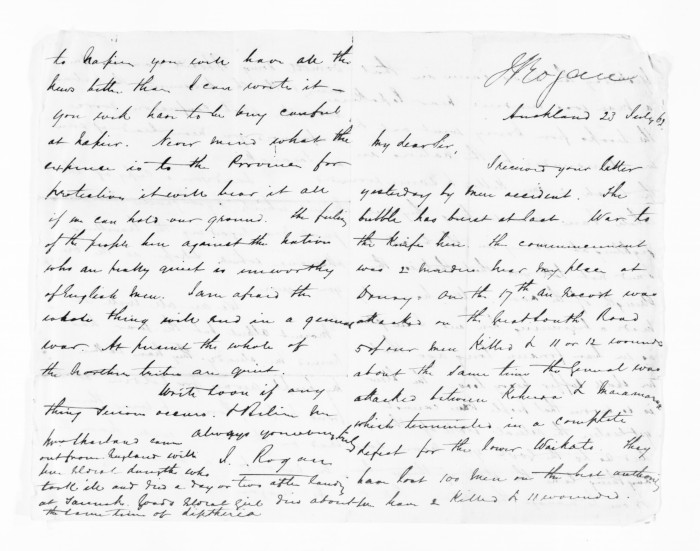 J Rogan
Auckland 23 July 63
My dear Sir,
I received your letter
yesterday by mere accident. The
bubble has burst at last. War to
the Knife here. The commencement
was 2 murders near my place at
on the 17th. an escort was
attacked on the Great South Road
5 of our men Killed & 11 or 12 wounded
about the same time the General was
attacked between &
which terminates in a complete
defeat for the lower Waikato. They
have lost 100 men on the best authority
we have 2 Killed & 11 wounded.
to Napier you will have all the
news better than I can write it —
you will have to be very careful
at Napier. Never mind what the
expense is to the Province for
protection it will bear it all
if we can hold our ground. The feeling
of the people here against the Natives
who are pretty quiet is unworthy
of English men. I am afraid the
whole thing will end in a general
war. At present the whole of
the Northern tribes are quiet.
Write soon if any
thing serious occurs.
always yours very truly
J. Rogan
came
out from England with
her eldest daughter who
took ill and died a day or two after landing
at eldest girl died about
the same time of diptheria